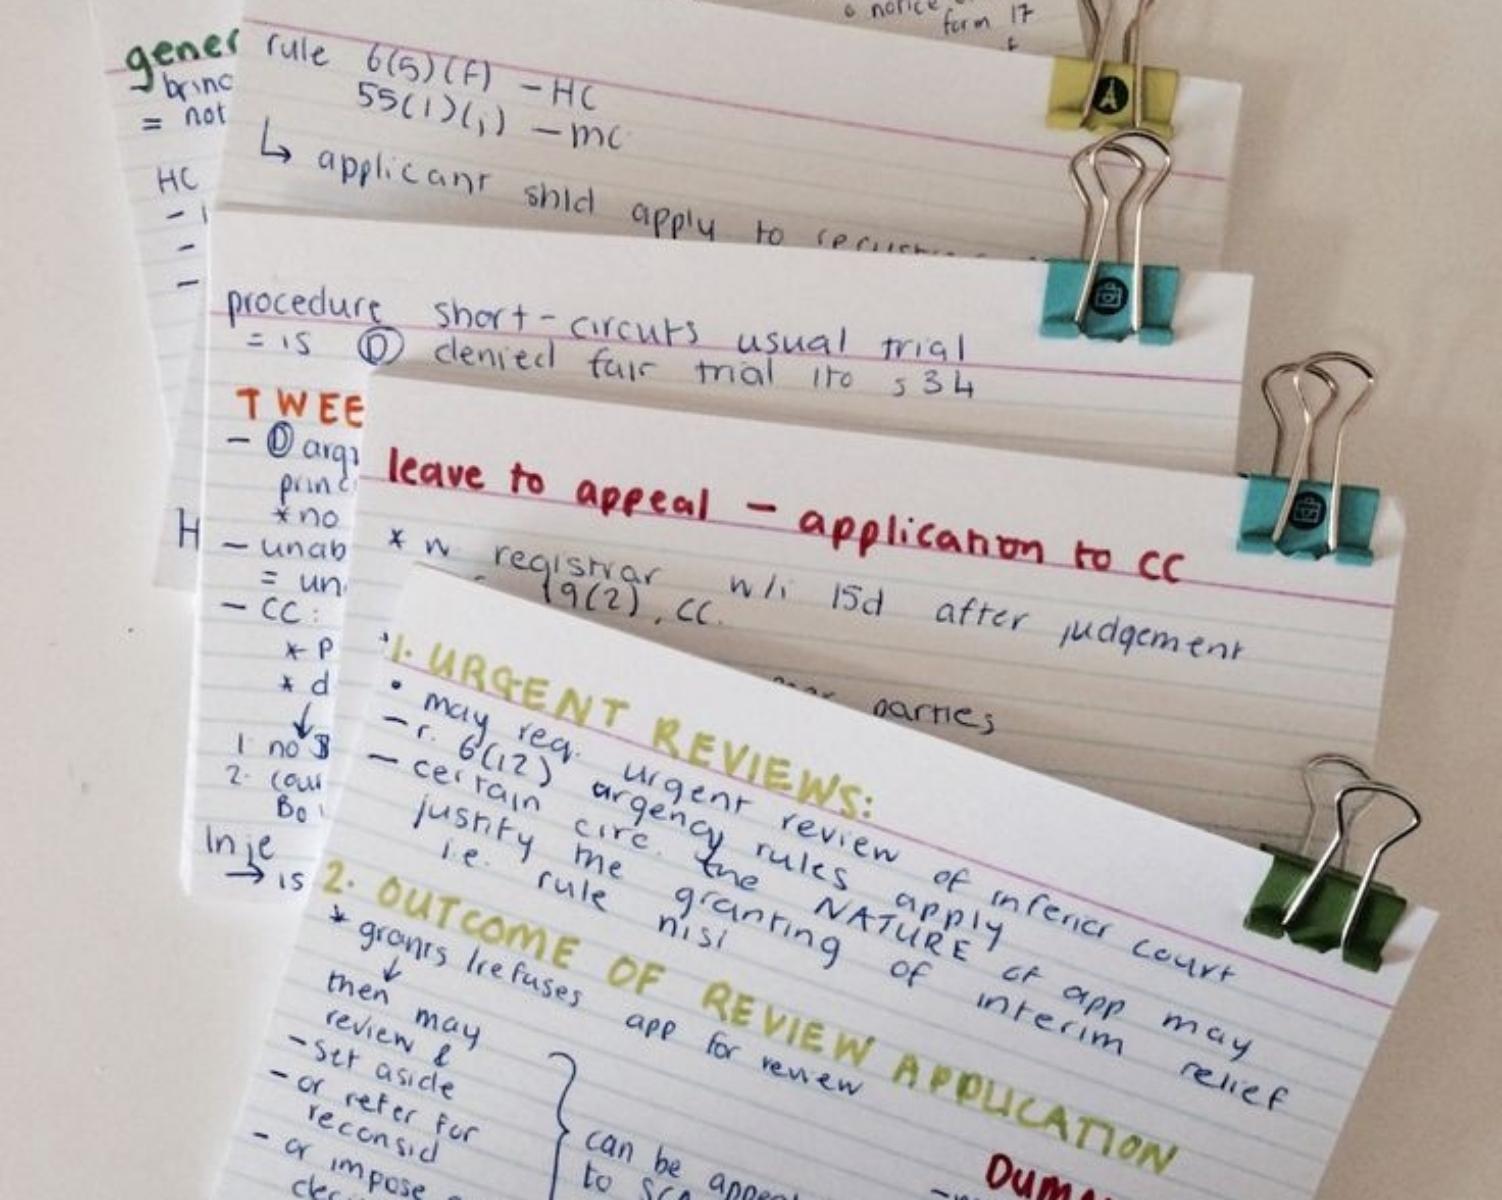 o notice
form 17
gener
– brinc
= not
HC
rule 6(5)(f) – HC
55(1)(,) – mc
↳ applicant shld apply to
procedure short-circuts usual trial
= is Ⓓ denied fair trial ito s 34
TWEE
– Ⓓ argr
princ
* no
– unab
= un
– CC:
* p
* d
↓
1. no
2. cour
Bo
Inje
→ is
H
leave to appeal – application to CC
* w registrar w/i 15d after judgement
19(2), CC.
parties
1. URGENT REVIEWS:
• may req. urgent review of inferior court
– r. 6(12) urgency rules apply
– certain circ. the NATURE of app may
justify the granting of interim relief
i.e. rule nisi
2. OUTCOME OF REVIEW APPLICATION
* grants/refuses app for review
↓
then may
review &
– set aside
– or refer for
reconsid
– or impose
can be appeal
to SCA
Duma